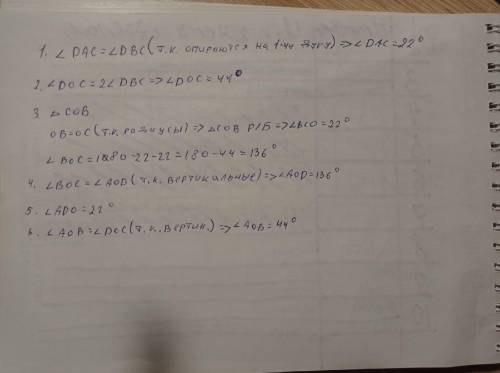 1. ∠DAC=∠DBC(т.к. опираются на 1-ну дугу)=>∠DAC=22°
2. ∠DOC=2∠DBC=>∠DOC=44°
3 △COB
OB=OC(т.к. радиусы)=>△COB Р/Б=>∠BCO=22°
∠BOC=180-22-22=180-44=136°
4. ∠BOC=∠AOD(т.к. вертикальные)=>∠AOD=136°
5. ∠ADO=22°
6. ∠AOB=∠DOC(т.к. вертик.)=>∠AOB=44°